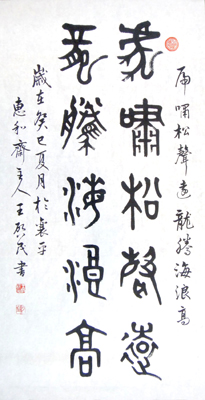 虎嘯松聲遠龍騰海浪高
虎嘯松聲遠
龍騰海浪高
歲在癸巳夏月於襄平
惠和齋主人王民書